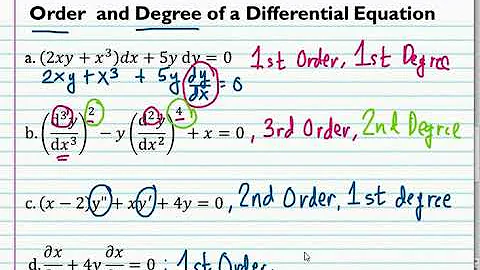 Order and Degree of a Differential Equation
a. (2xy + x³)dx + 5y dy = 0 1st Order, 1st Degree
2xy + x³ + 5y dy/dx = 0
b. (d³y/dx³)² − y (d²y/dx²)⁴ + x = 0 , 3rd Order, 2nd Degree
c. (x − 2)y" + xy' + 4y = 0 , 2nd Order, 1st degree
d. ∂x + 4y ∂x = 0 : 1st Order,